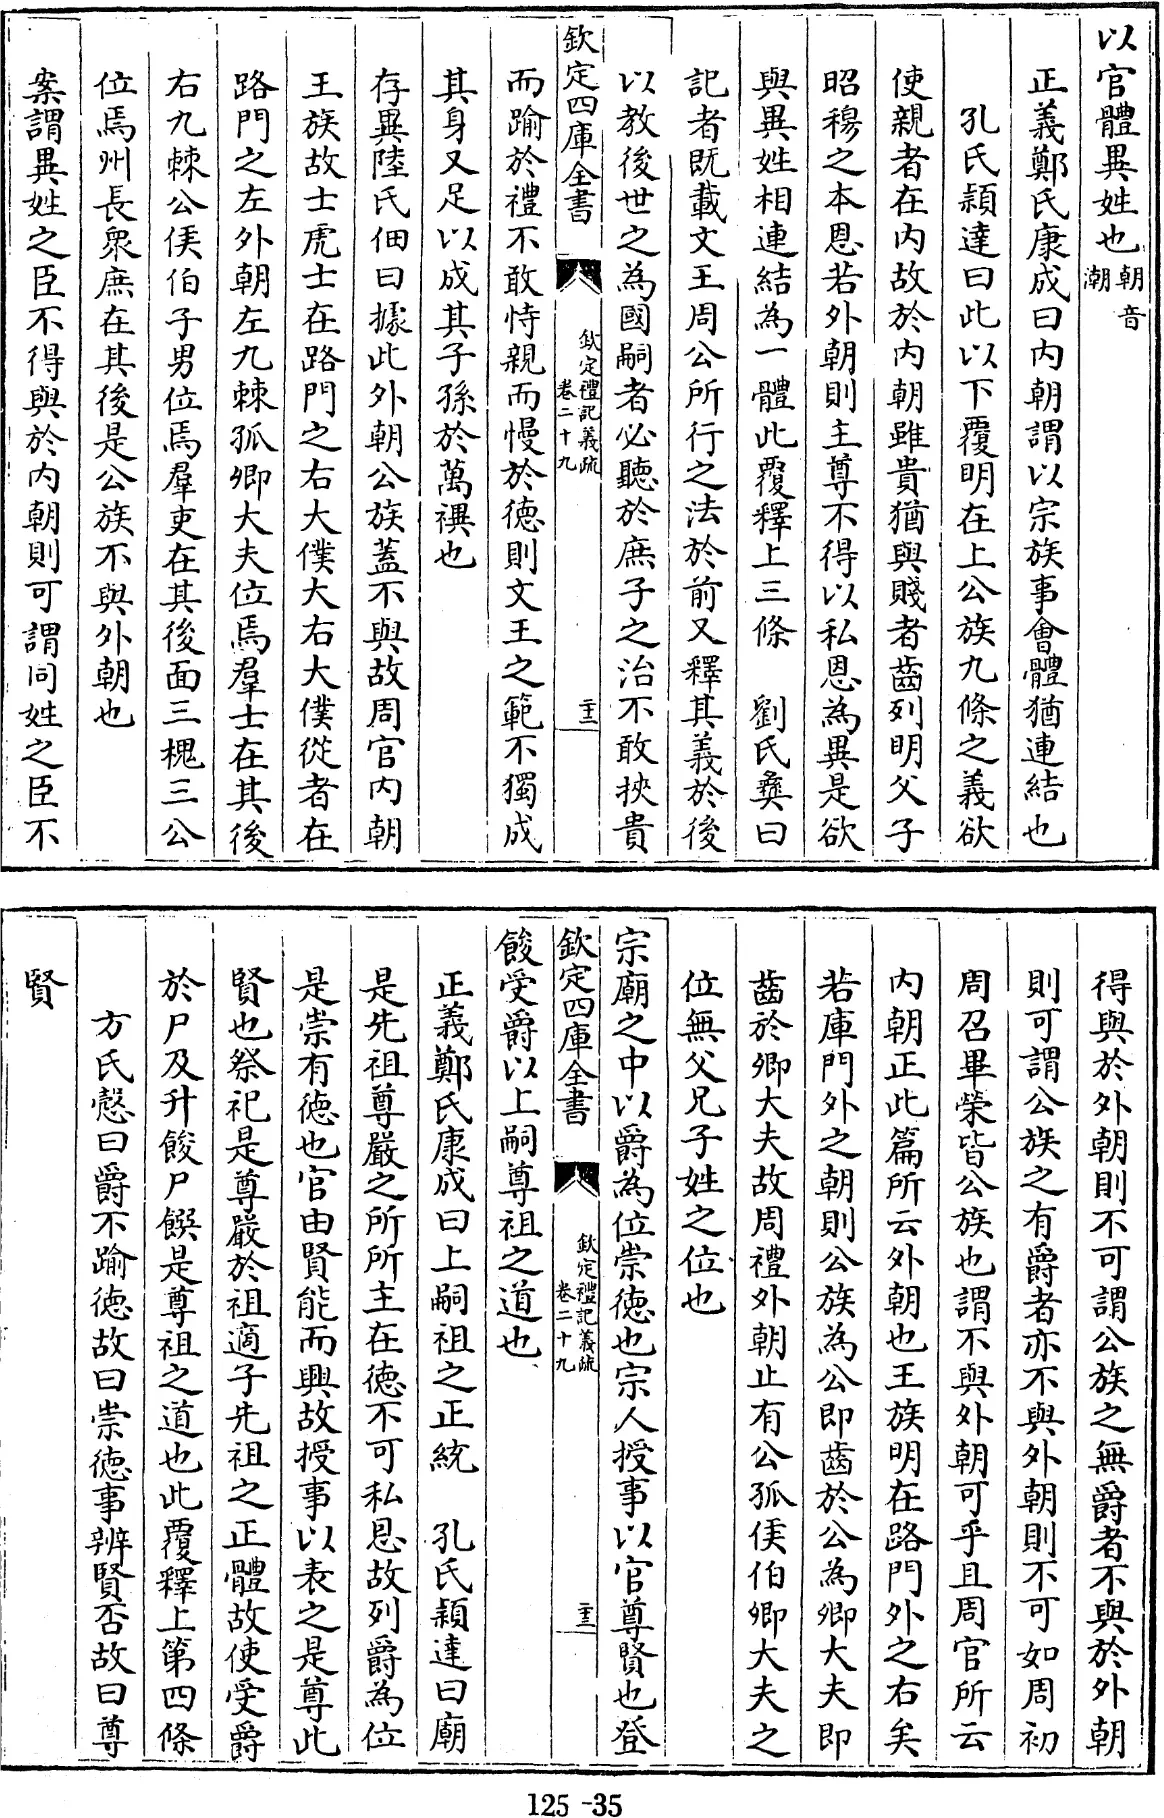 以官體異姓也朝音潮
正義鄭氏康成曰内朝謂以宗族事會體猶連結也
孔氏穎達曰此以下覆明在上公族九條之義欲
使親者在内故於内朝雖貴猶與賤者齒列明父子
昭穆之本恩若外朝則主尊不得以私恩為異是欲
與異姓相連結為一體此覆釋上三條　劉氏彝曰
記者既載文王周公所行之法於前又釋其義於後
以教後世之為國嗣者必聽於庶子之治不敢挾貴
欽定四庫全書
欽定禮記義疏
卷二十九
而踰於禮不敢恃親而慢於德則文王之範不獨成
其身又足以成其子孫於萬禩也
存異陸氏佃曰據此外朝公族蓋不與故周官内朝
王族故士虎士在路門之右大僕大右大僕從者在
路門之左外朝左九棘孤卿大夫位焉羣士在其後
右九棘公侯伯子男位焉羣吏在其後面三槐三公
位焉州長衆庶在其後是公族不與外朝也
案謂異姓之臣不得與於内朝則可謂同姓之臣不
得與於外朝則不可謂公族之無爵者不與於外朝
則可謂公族之有爵者亦不與外朝則不可如周初
周召畢榮皆公族也謂不與外朝可乎且周官所云
内朝正此篇所云外朝也王族明在路門外之右矣
若庫門外之朝則公族為公即齒於公為卿大夫即
齒於卿大夫故周禮外朝止有公孤侯伯卿大夫之
位無父兄子姓之位也
宗廟之中以爵為位崇德也宗人授事以官尊賢也登
欽定四庫全書
欽定禮記義疏
卷二十九
餕受爵以上嗣尊祖之道也
正義鄭氏康成曰上嗣祖之正統　孔氏穎達曰廟
是先祖尊嚴之所所主在德不可私恩故列爵為位
是崇有德也官由賢能而興故授事以表之是尊此
賢也祭祀是尊嚴於祖適子先祖之正體故使受爵
於尸及升餕尸饌是尊祖之道也此覆釋上第四條
方氏慤曰爵不踰德故曰崇德事辨賢否故曰尊
賢
125 -35